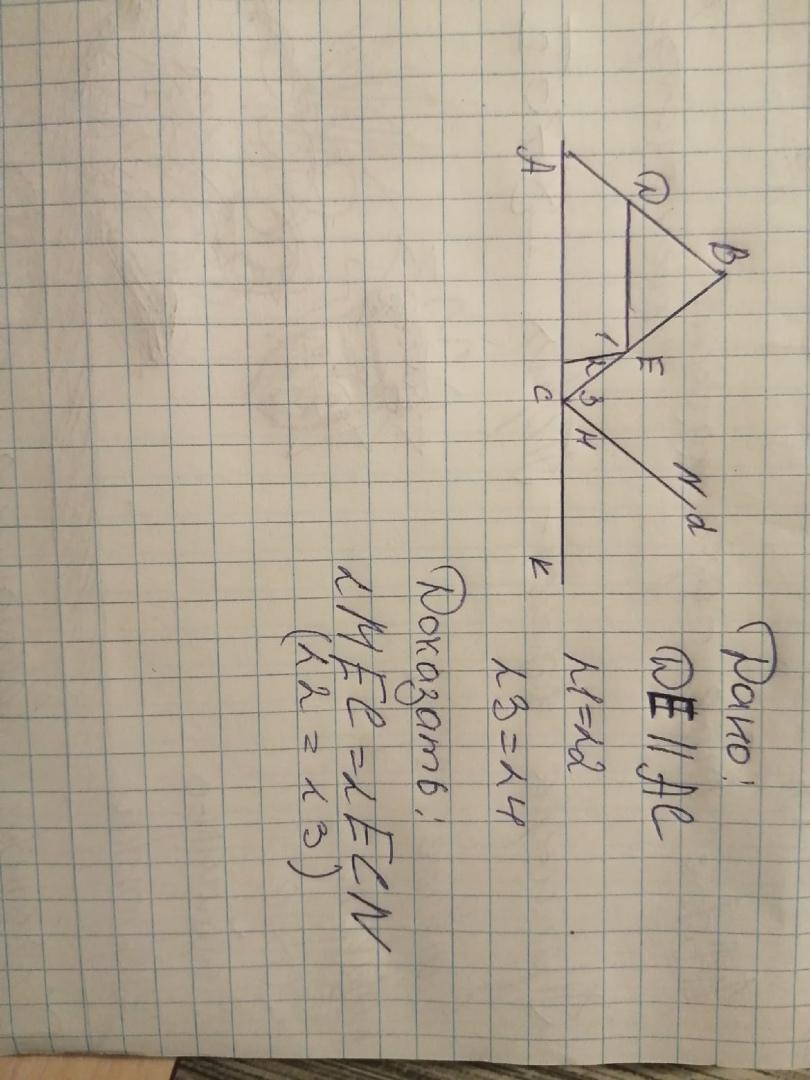 Дано:
DE || AC
∠1=∠2
∠3=∠4
Доказать:
∠MEC=∠ECN
(∠2=∠3)
B
N d
D
E
1 2 3 4
A
C
K